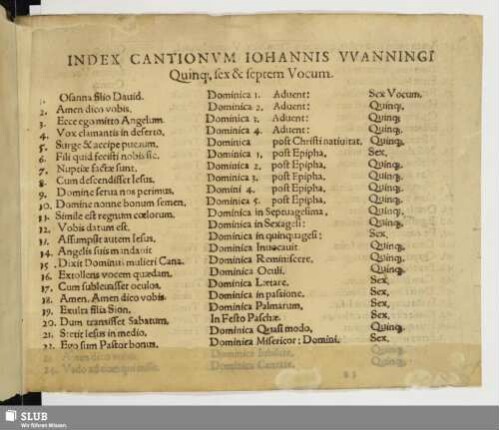 INDEX CANTIONVM IOHANNIS VVANNINGI
Quinq, sex & septem Vocum.
1. Osanna filio Dauid. Dominica 1. Aduent: Sex Vocum.
2. Amen dico vobis. Dominica 2. Aduent: Quinq,
3. Ecce ego mitto Angelum. Dominica 3. Aduent: Quinq,
4. Vox clamantis in deserto. Dominica 4. Aduent: Quinq,
5. Surge & accipe puerum. Dominica post Christi natiuitat. Quinq,
6. Fili quid fecisti nobis sic. Dominica 1. post Epipha, Sex,
7. Nuptiæ factæ sunt. Dominica 2. post Epipha, Quinq,
8. Cum descendisset Iesus. Dominica 3. post Epipha, Quinq,
9. Domine serua nos perimus. Domini 4. post Epipha, Quinq,
10. Domine nonne bonum semen. Dominica 5. post Epipha, Quinq,
11. Simile est regnum cœlorum. Dominica in Septuagesima, Quinq,
12. Vobis datum est. Dominica in Sexagesi: Quinq,
13. Assumpsit autem Iesus. Dominica in quinquagesi: Sex,
14. Angelis suis mandauit Dominica Inuocauit Quinq,
15. Dixit Dominus mulieri Cana. Dominica Reminiscere, Quinq,
16. Extollens vocem quædam. Dominica Oculi. Quinq,
17. Cum subleuasset oculos. Dominica Lætare. Sex,
18. Amen, Amen dico vobis Dominica in passione. Sex,
19. Exulta filia Sion. Dominica Palmarum, Sex,
20. Dum transisset Sabatum. In Festo Paschæ. Sex,
21. Stetit Iesus in medio, Dominica Quasi modo, Quinq,
22. Ego sum Pastor bonus. Dominica Misericor: Domini. Sex,
Amen dico vobis Dominica Iubilate,
24. Vado ad eum qui misit. Dominica Cantate,
SLUB
Wir führen Wissen.